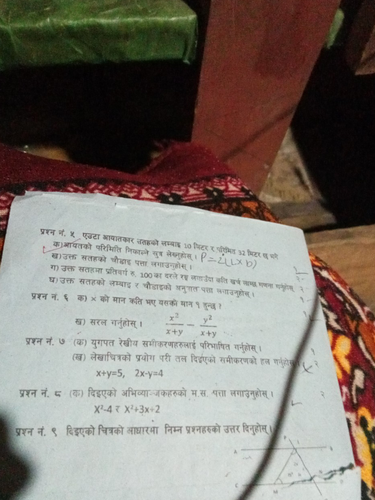 प्रश्न नं. ५ एउटा आयातकार सतहको लम्बाइ 10 मिटर र परिमिति 32 मिटर छ भने
क) आयतको परिमिति निकाल्ने सुत्र लेख्नुहोस् । P = 2(L×b)
ख) उक्त सतहको चौडाइ पत्ता लगाउनुहोस् ।
ग) उक्त सतहमा प्रतिवर्ग रु. 100 का दरले रङ्ग लगाउँदा कति खर्च लाग्छ गणना गर्नुहोस् ।
घ) उक्त सतहको लम्बाइ र चौडाइको अनुपात पत्ता लगाउनुहोस् ।
प्रश्न नं. ६ क) × को मान कति भए यसको मान १ हुन्छ ।
ख) सरल गर्नुहोस् । x²/x+y − y²/x+y
प्रश्न नं. ७ (क) युगपत रेखीय समीकरणहरुलाई परिभाषित गर्नुहोस् ।
(ख) लेखाचित्रको प्रयोग परी तल दिइएको समीकरणको हल गर्नुहोस्
x+y=5, 2x-y=4
प्रश्न नं. ८ (क) दिइएको अभिव्यञ्जकहरुको म.स. पत्ता लगाउनुहोस् ।
X²-4 र X²+3x+2
प्रश्न नं. ९ दिइएको चित्रको आधारमा निम्न प्रश्नहरुको उत्तर दिनुहोस् ।